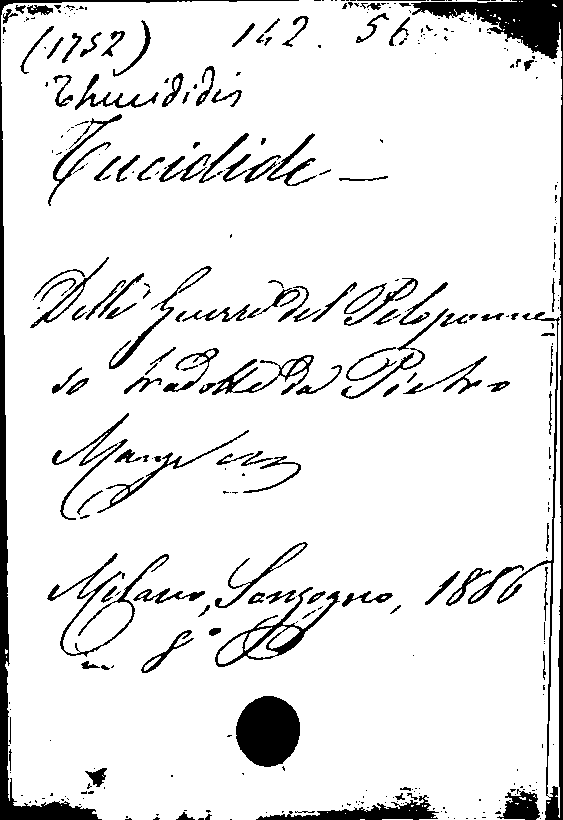 (1752) 142. 56
Thucididis
Tucidide —
Delle Guerre del Peloponne-
so tradotte da Pietro
Milano, Sonzogno, 1886
in 8°